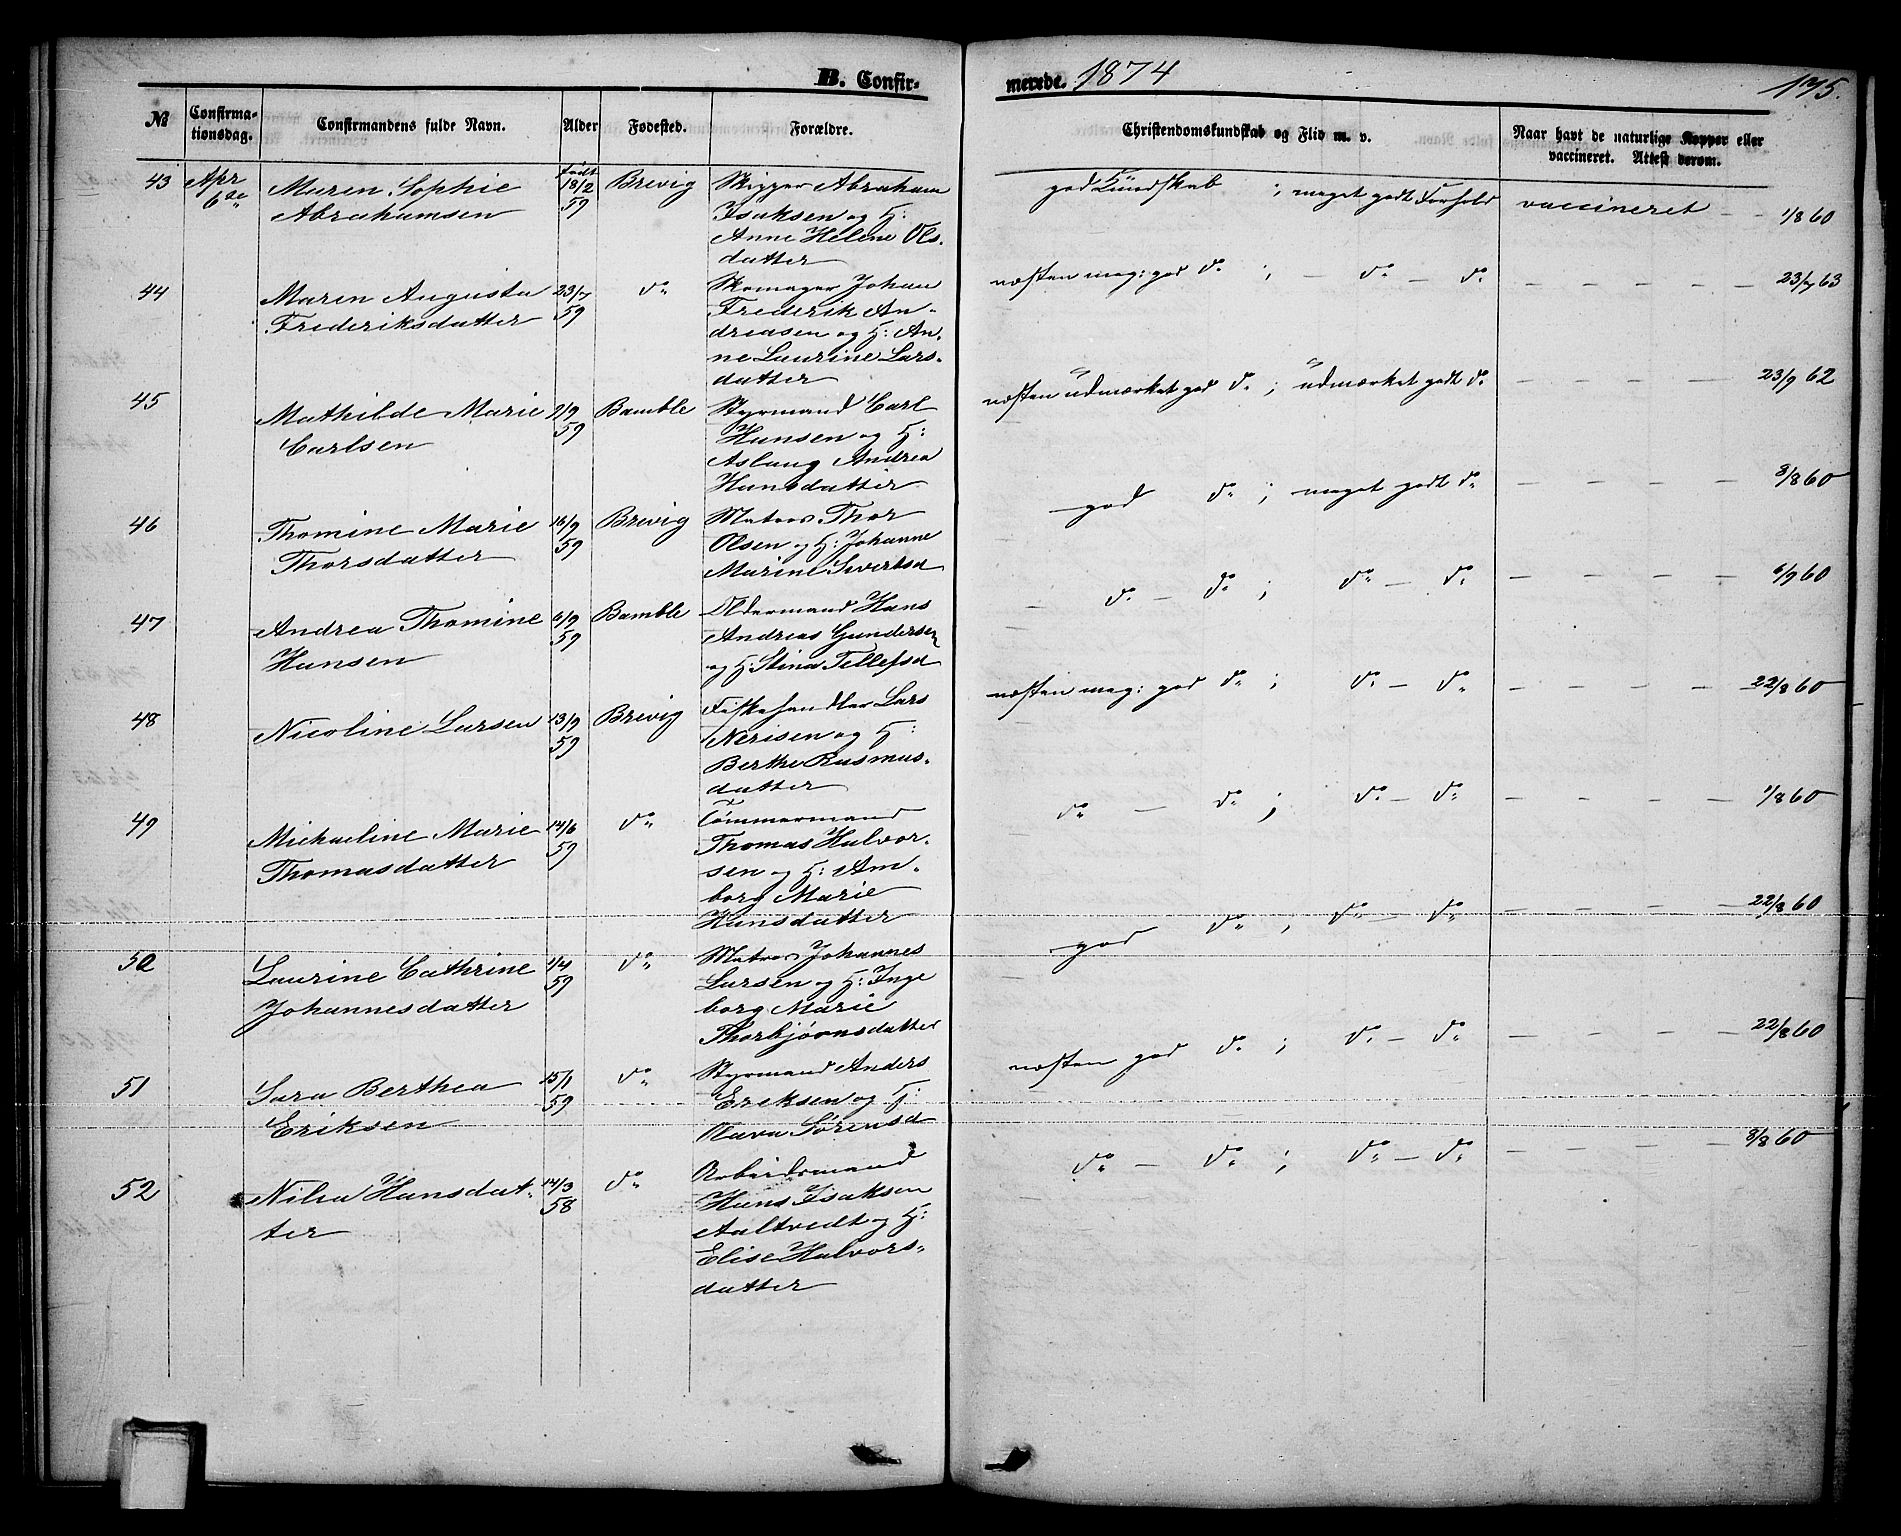 B. Confir-
merede. 1874
175.
№
Confirma-
tionsdag.
Confirmandens fulde Navn.
Alder
Fødested.
Forældre.
Christendomskundskab og Flid m. v.
Naar havt de naturlige Kopper eller
vaccineret. Attest derom.
43 Apr Maren Sophie født 18/2 Brevig Skipper Abraham god Kundskab ; meget godt Forhold vaccineret — 1/8 60
6te Abrahamsen 59 Isaksen og H:
Anne Helene Ols-
datter
44 Maren Augusta 23/7 do Skomager Johan næsten meg: god do ; — do — do — — — — 23/7 63
Frederiksdatter 59 Frederik An-
dreasen og H: An-
ne Laurine Lars-
datter
45 Mathilde Marie 2/9 Bamble Styrmand Carl næsten udmærket god do ; udmærket godt do — — — — 23/9 62
Carlsen 59 Hansen og H:
Aslaug Andrea
Hansdatter
46 Thomine Marie 16/9 Brevig Matros Thor god do ; meget godt do — — — — 8/8 60
Thorsdatter 59 Olsen og H: Johanne
Marine Sivertsd
47 Andrea Thomine 6/9 Bamble Oldermand Hans — do — do ; do — do — — — — 6/9 60
Hansen 59 Andreas Gundersen
og H: Stina Tellefsd
48 Nicoline Larsen 13/9 Brevig Fiskehandler Lars næsten meg: god do ; do — do — — — — 22/8 60
59 Nerisen og H:
Berthe Rasmus-
datter
49 Michaeline Marie 14/6 do Tømmermand do — do ; do — do — — — — 1/8 60
Thomasdatter 59 Thomas Halvor-
sen og H: Am-
borg Marie
Hansdatter
50 Laurine Cathrine 1/4 do Matros Johannes god do ; do — do — — — — 22/8 60
Johannesdatter 59 Larsen og H: Inge
borg Marie
Thorbjørnsdatter
51 Sara Berthea 15/1 do Styrmand Anders næsten god do ; do — do — — — — 22/8 60
Eriksen 59 Eriksen og H:
Olava Sørensd
52 Nilia Hansdat- 14/3 do Arbeidsmand do — do ; do — do — — — — 8/8 60
ter 58 Hans Isaksen
Aaltvedt og H:
Elise Halvors-
datter